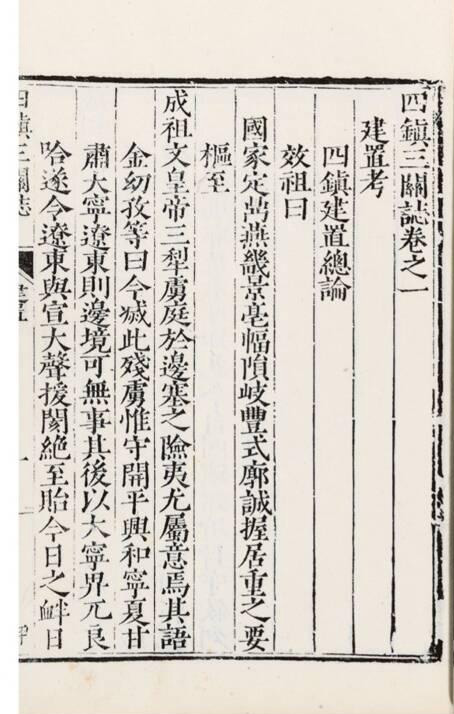 四鎮三關誌卷之一
建置考
四鎮建置總論
效祖曰
國家定鼎燕畿景亳幅隕岐豐式廓誠握居重之要
樞至
成祖文皇帝三犁虜庭於邊塞之險夷尤屬意焉其語
金幼孜等曰今滅此殘虜惟守開平興和寧夏甘
肅大寧遼東則邊境可無事其後以大寧界兀良
哈遂令遼東與宣大聲援閡絶至貽今日之衅日
四鎮三關誌
一